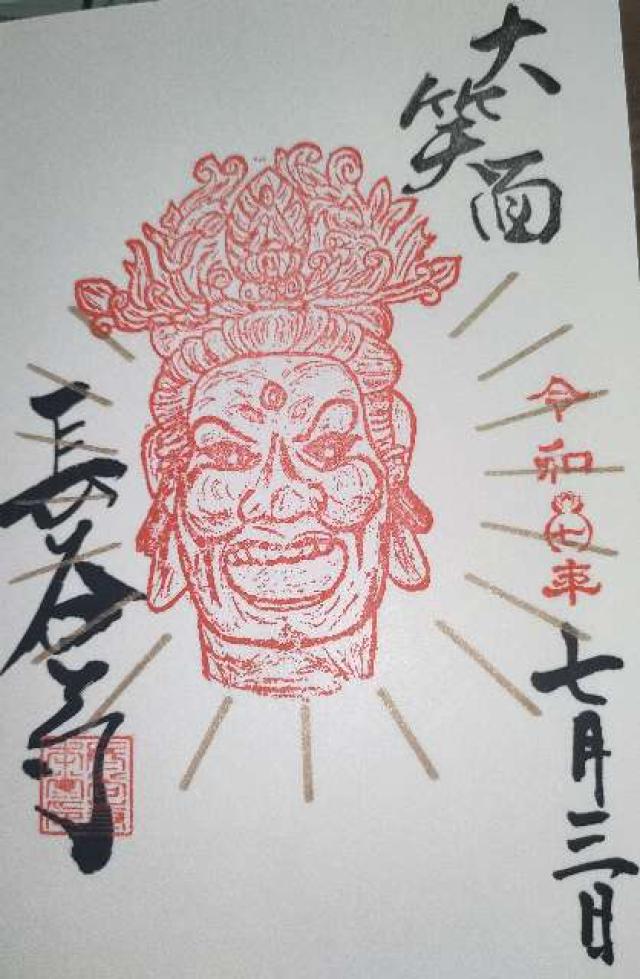 大笑面
令和七年
七月三日
長谷寺